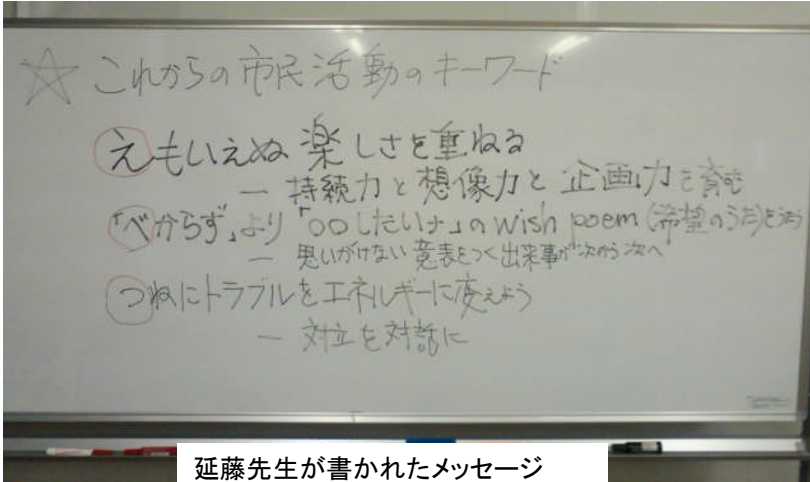 ☆ これからの市民活動のキーワード
えもいえぬ 楽しさを重ねる
― 持続力と想像力と企画力を育む
「べからず」より「○○したいナ」のwish poem (希望のうた)をうたう
― 思いがけない意表をつく出来事が次から次へ
つねにトラブルをエネルギーに変えよう
― 対立を対話に
延藤先生が書かれたメッセージ